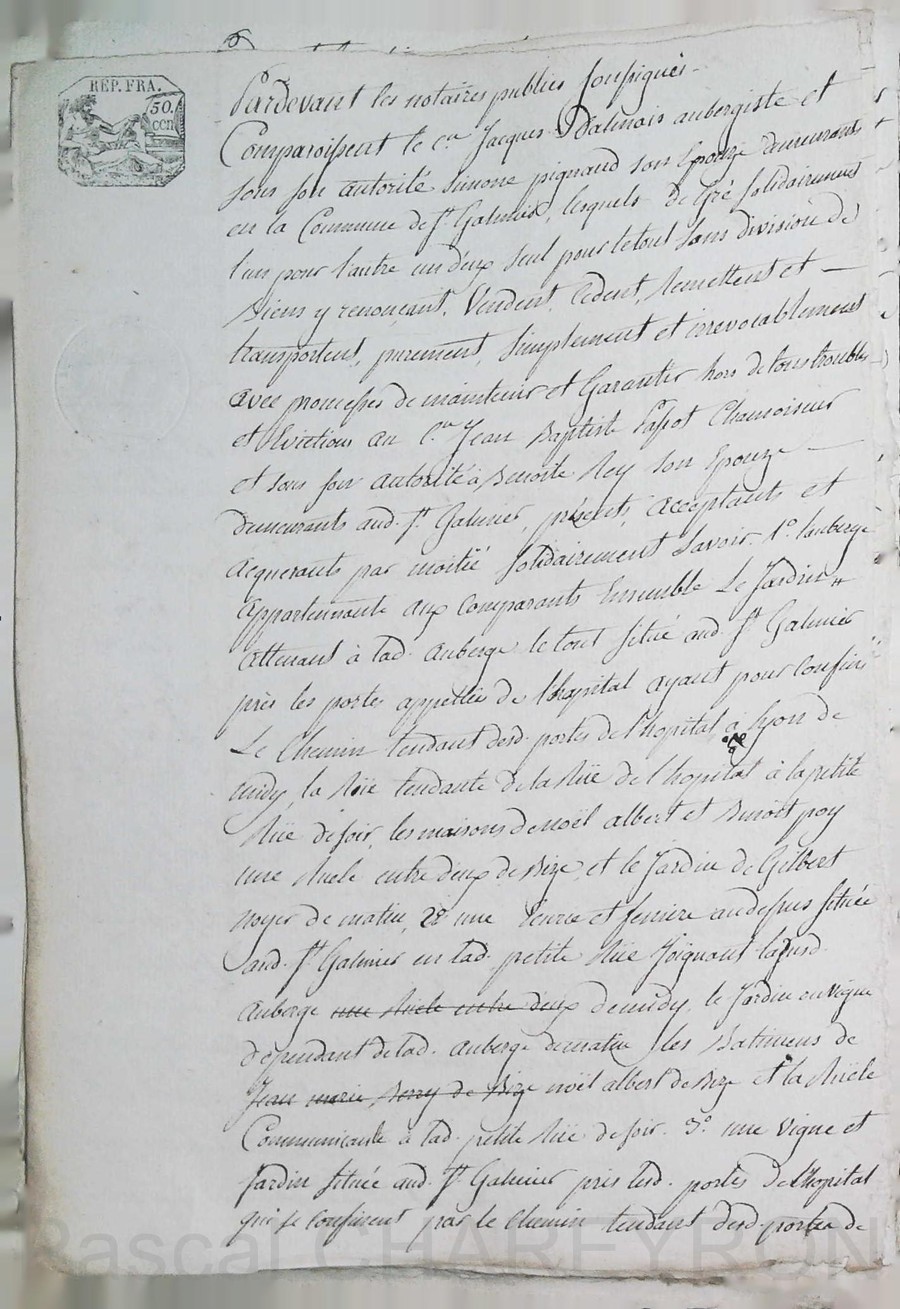 REP. FRA.
50.
CEN
Pardevant les notaires publics soussignés
Comparoissent le c.en Jacques Dalmais aubergiste et
sous son autorité simone pignaud son Epouze demeurants
en la Commune de st. Galmier, lesquels de Gré solidairement
l'un pour l'autre un d'eux seul pour le tout sans division de
Biens y renonçant, Vendent, Cedent, Remettent et
transportent, purement, simplement et irrevocablement
avec promesses de maintenir et Garantir hors de tous troubles
et Evictions au C.en Jean Baptiste Passot Chamoiseur
et sous son autorité à Benoite Rey son Epouze
demeurants aud. st. Galmier, présents, acceptants et
acquerants par moitié solidairement Savoir. 1º. l'auberge
appartennante aux comparants Ensemble Le Jardin
attenant à lad. auberge le tout situé aud. st. Galmier
près les portes appellées de l'hopital ayant pour confins
Le Chemin tendant desd. portes de l'hopital à lyon de
midy, la Rüe tendante de la Rüe de l'hopital à la petite
Rüe de soir, les maisons de noël albert et Benoit poy
une Ruele entre deux de Bize, et le Jardin de Gilbert
noyer de matin, 2º une Ecurie et feniere au dessus située
aud. st. Galmier en lad. petite Rüe Joignant lasusd.
auberge une Ruele entre deux de midy, le Jardin ou vigne
dependant de lad. auberge de matin les Batimens de
Jean marie Berry de Bize noël albert de Bize et la Ruële
Communicante à lad. petite Rüe de soir. 3º. une vigne et
Jardin située aud. st. Galmier près lesd. portes de l'hopital
qui se confinent par le chemin tendant desd. portes de
Pascal CHAREYRON